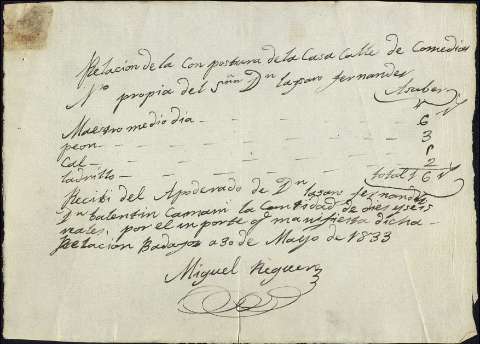 Relacion de la Conpostura de la Casa Calle de Comedias
Nº propia del Señor Dn Lasaro fernandes
Asaber
Maestro medio dia - - - - - - 6
peon - - - - - - 3
Cal - - - - - -
ladrillo - - - - - - 2
total 16
Recibi del Apoderado de Dn Lasaro fernandes
Dn Valentin Camani la Cantidad de dies y seis
reales, por el inporte q manifiesta dicha
Relacion Badajos a 30 de Mayo de 1833
Miguel Reguera